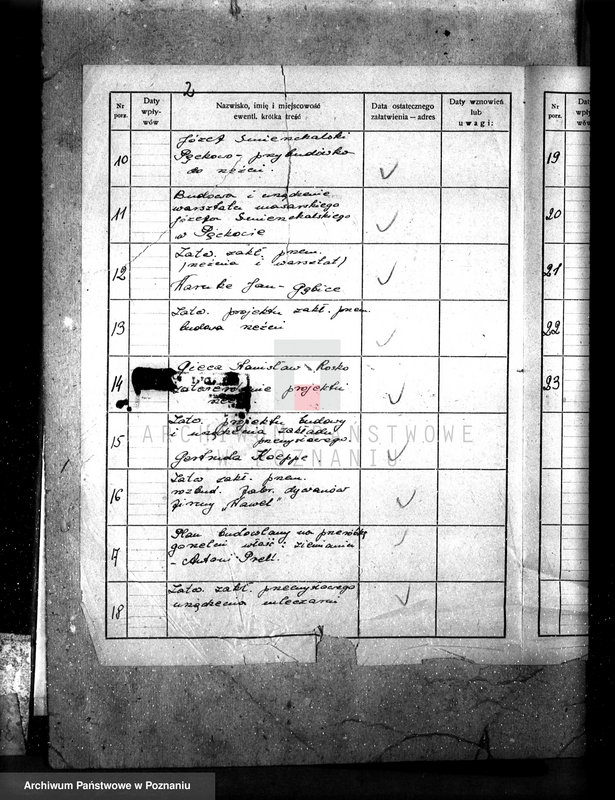 2
Nr porz.
Daty wpły-wów
Nazwisko, imię i miejscowość ewentl. krótka treść
Data ostatecznego załatwienia — adres
Daty wznowień lub uwagi:
Nr porz.
Daty wpły-wów
10
Józef Smierzchalski
Pęckowo - przybudówka
do rzeźni.
11
Budowa i urządzenie
warsztatu masarskiego
Józefa Smierzchalskiego
w Pęckocie
12
Zatw. zakł. przem.
(rzeźnia i warsztat)
Jan - Gębice
13
Zatw. projektu zakł. przem.
budowa rzeźni
14
Gieca Stanisław Rosko
zatwierdzenie projektu
15
Zatw. projektu budowy
i urządzenia zakładu
przemysłowego.
Gertruda Koeppe
16
Zatw. zakł. przem.
rozbud. fabr. dywanów
firmy „Kawel”
7
Plan budowlany na przeróbkę
gorzelni właśc: ziemianin
- Antoni
18
Zatw. zakł. przemysłowego
urządzenia mleczarni
19
20
21
22
23
ARCHIWUM PAŃSTWOWE
W POZNANIU
Archiwum Państwowe w Poznaniu